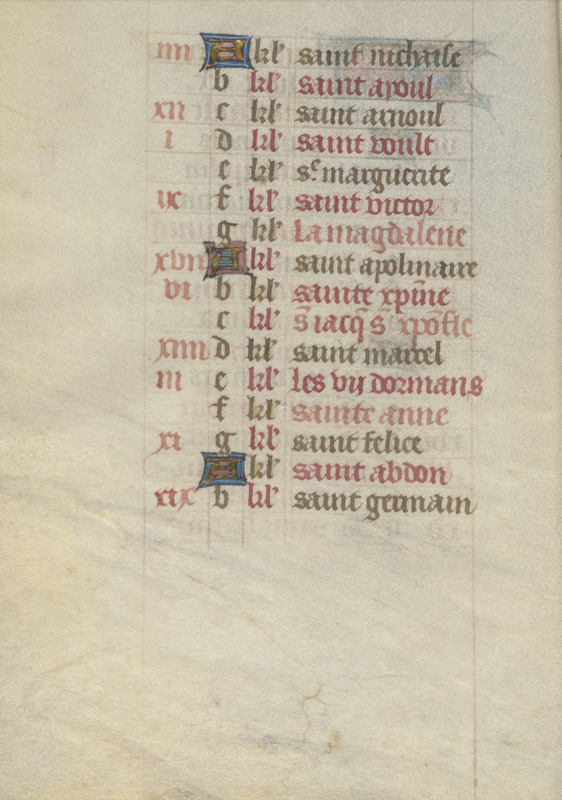 iiii A kl' saint nichaise
b kl' saint apoul
xii c kl' saint arnoul
i d kl' saint voult
e kl' s.e marguerite
ix f kl' saint victor
g kl' La magdalene
xvii A kl' saint apolinaire
vi b kl' sainte xp̄ine
c kl' s̄ iacq̄ s̄ xpōfle
xiiii d kl' saint marcel
iii e kl' les vij dormans
f kl' sainte anne
xi g kl' saint felice
A kl' saint abdon
xix b kl' saint germain